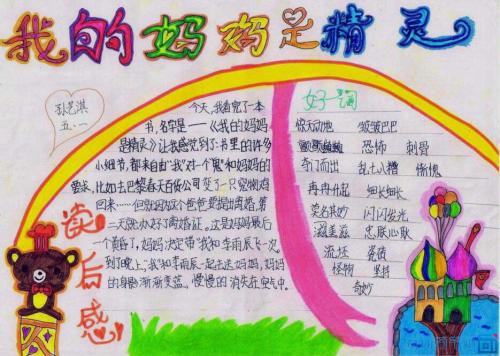 我的妈妈是精灵
孙艺淇
五.一
今天,我看完了一本
书,名字是——《我的妈妈
是精灵》让我感觉到:书里的许多
小细节,都来自"我"对一个鬼和妈妈的
爱,比如去巴黎春天百货公司变了一只
回来……但就因故个爸爸要提出离婚.第
二天就办好了离婚证。这是妈妈最后
一个黄昏了,妈妈决定带"我"和李雨辰飞一次
到了晚上,"我"和李雨辰一起去送妈妈,妈妈
的身影渐渐变蓝,慢慢的消失在空气中。
读后感
好词
惊天动地 皱皱巴巴
恐怖 刺骨
夺门而出 乱七八糟 惭愧
冉冉升起 细长细长
莫名其妙 闪闪发光
滋滋 忠联心耿
流 瓷砖
怪物 坚持
奇妙